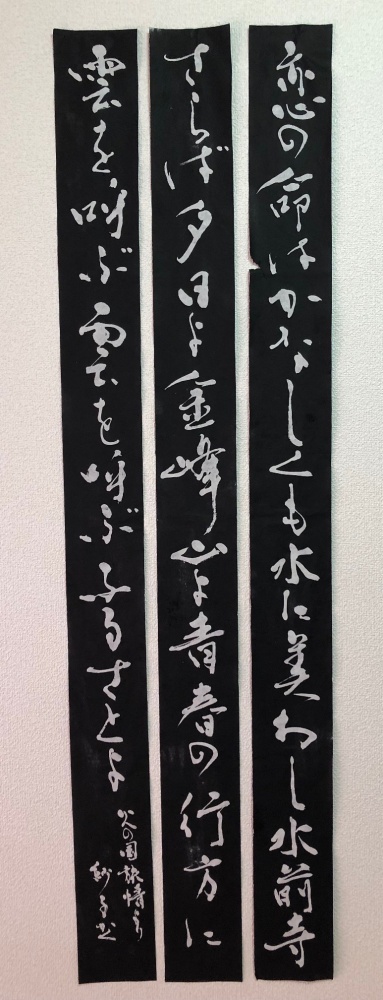 恋の命はかなしくも水に美わし水前寺
さらば夕日よ金峰山よ青春の行方に
雲を呼ぶ雲を呼ぶふるさとよ
火の国旅情より
紗子書